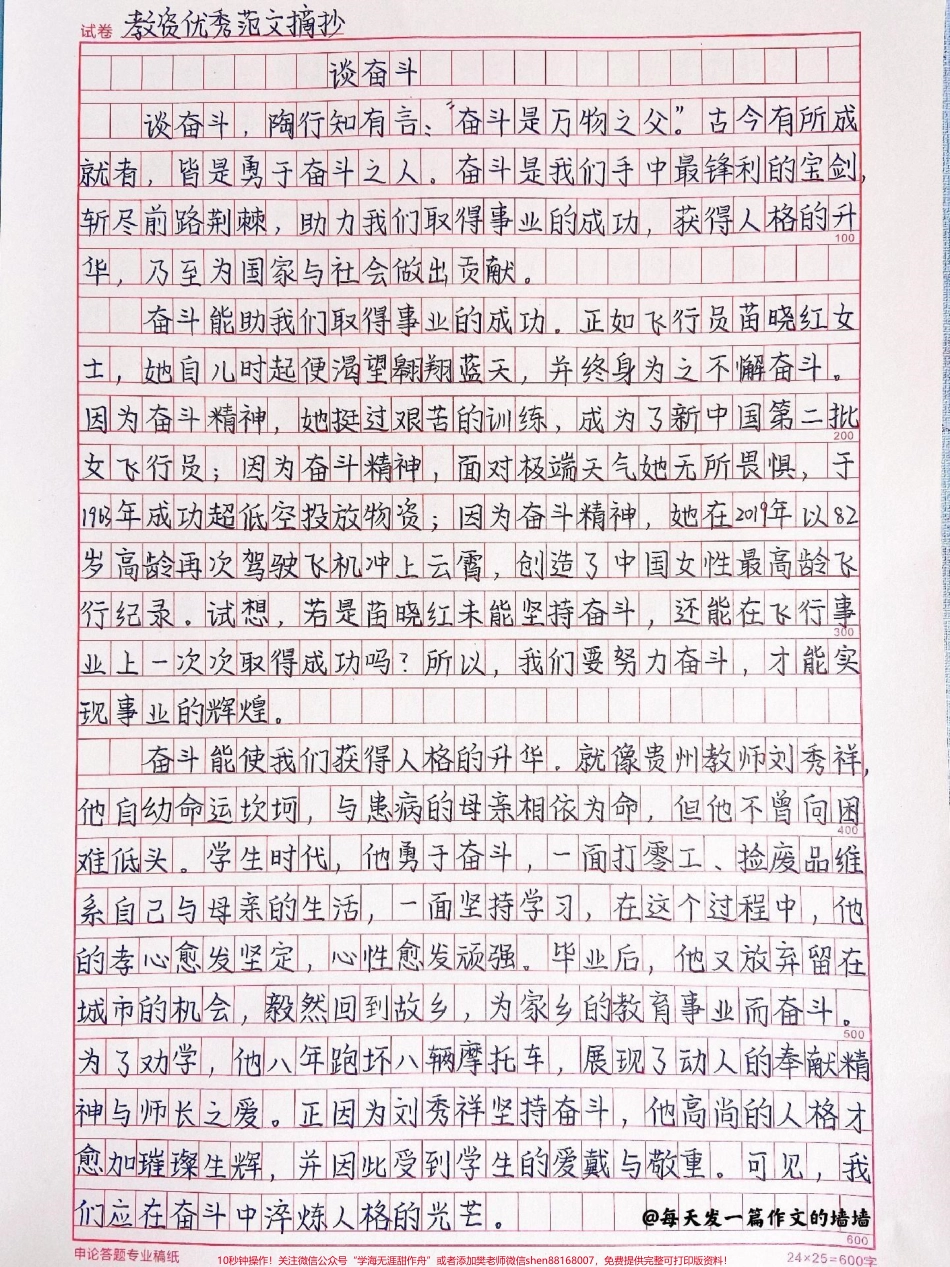 试卷 教资优秀范文摘抄
谈奋斗
谈奋斗，陶行知有言：“奋斗是万物之父”。古今有所成
就者，皆是勇于奋斗之人。奋斗是我们手中最锋利的宝剑，
斩尽前路荆棘，助力我们取得事业的成功，获得人格的升
100
华，乃至为国家与社会做出贡献。
奋斗能助我们取得事业的成功。正如飞行员苗晓红女
士，她自儿时起便渴望翱翔蓝天，并终身为之不懈奋斗。
因为奋斗精神，她挺过艰苦的训练，成为了新中国第二批
200
女飞行员；因为奋斗精神，面对极端天气她无所畏惧，于
1963年成功超低空投放物资；因为奋斗精神，她在2019年以82
岁高龄再次驾驶飞机冲上云霄，创造了中国女性最高龄飞
行纪录。试想，若是苗晓红未能坚持奋斗，还能在飞行事
300
业上一次次取得成功吗？所以，我们要努力奋斗，才能实
现事业的辉煌。
奋斗能使我们获得人格的升华。就像贵州教师刘秀祥，
他自幼命运坎坷，与患病的母亲相依为命，但他不曾向困
400
难低头。学生时代，他勇于奋斗，一面打零工、捡废品维
系自己与母亲的生活，一面坚持学习，在这个过程中，他
的孝心愈发坚定，心性愈发顽强。毕业后，他又放弃留在
城市的机会，毅然回到故乡，为家乡的教育事业而奋斗。
500
为了劝学，他八年跑坏八辆摩托车，展现了动人的奉献精
神与师长之爱。正因为刘秀祥坚持奋斗，他高尚的人格才
愈加璀璨生辉，并因此受到学生的爱戴与敬重。可见，我
们应在奋斗中淬炼人格的光芒。
@每天发一篇作文的墙墙
600
申论答题专业稿纸
10秒钟操作！关注微信公众号“学海无涯甜作舟”或者添加樊老师微信shen88168007，免费提供完整可打印版资料！
24×25=600字